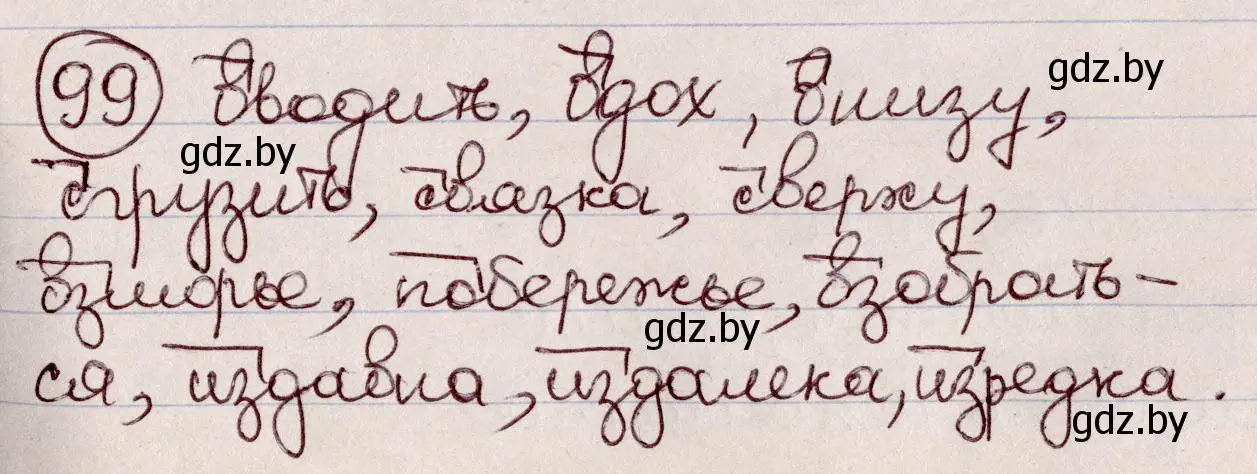 99 вводить, вдох, внизу, gdz.by
gdz.by
сгрузить, связка, сверху,
взморье, побережье, взобрать-
gdz.by
ся, издавна, издалека, изредка.
gdz.by